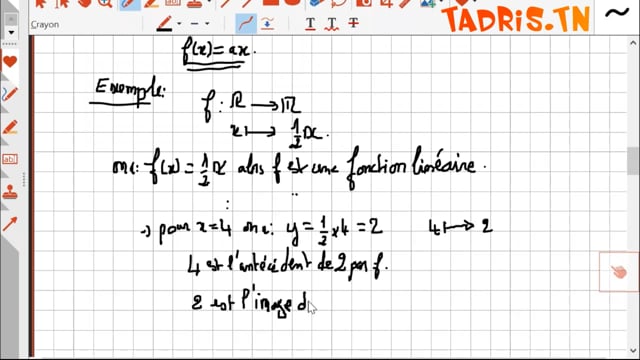 TADRIS.TN
Crayon
f(x)=ax.
Exemple:
f: ℝ → ℝ
x ↦ 1/2 x.
on a: f(x)=1/2 x alors f est une fonction linéaire.
→ pour x=4 on a: y=1/2 x4=2 4 ↦ 2
4 est l'antécédent de 2 par f.
2 est l'image d